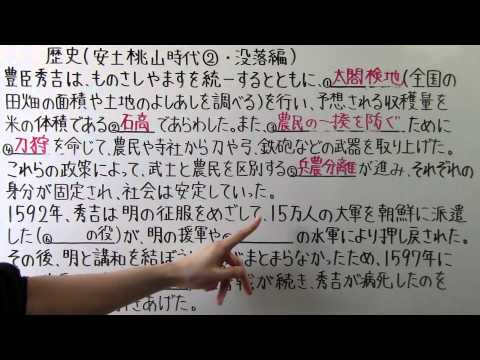 歴史(安土桃山時代②・没落編)
豊臣秀吉は、ものさしやますを統一するとともに、①太閤検地(全国の
田畑の面積や土地のよしあしを調べる)を行い、予想される収穫量を
米の体積である②石高であらわした。また、③農民の一揆を防ぐために
④刀狩を命じて、農民や寺社から刀や弓、鉄砲などの武器を取り上げた。
これらの政策によって、武士と農民を区別する⑤兵農分離が進み、それぞれの
身分が固定され、社会は安定していった。
1592年、秀吉は明の征服をめざして、15万人の大軍を朝鮮に派遣
した(⑥の役)が、明の援軍やの水軍により押し戻された。
その後、明と講和を結ぼうまとまらなかったため、1597年に
が続き、秀吉が病死したのを
きあげた。